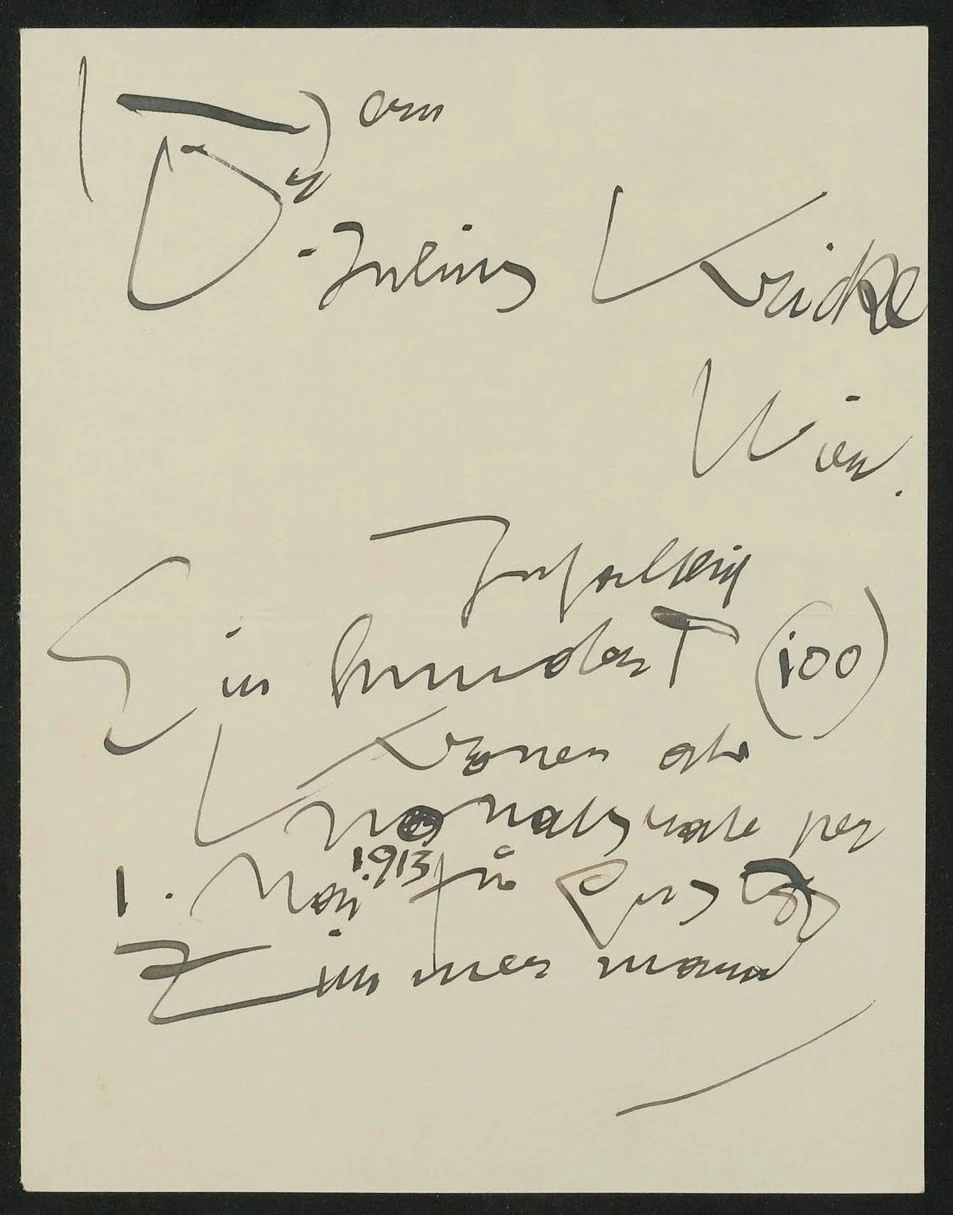 Herrn
Dr. Julius Kricke
Wien.
Ein hundert (100)
Kronen als
Monatsrate per
1. Mai 1913 für
Zimmermann